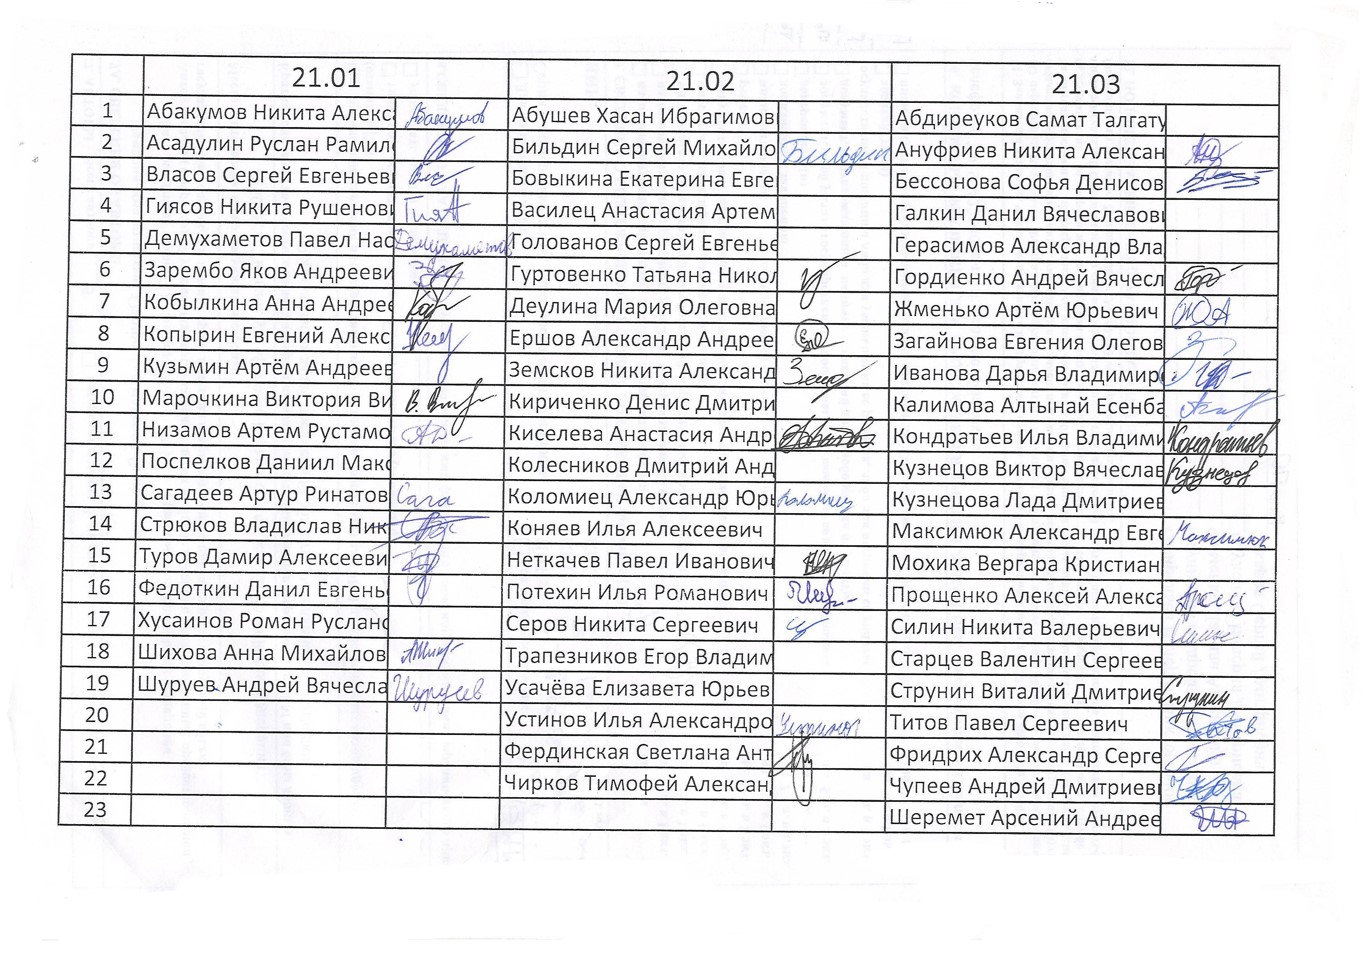 21.01 21.02 21.03
1 Абакумов Никита Алекса Абакумов Абушев Хасан Ибрагимов Абдиреуков Самат Талгату
2 Асадулин Руслан Рамил Бильдин Сергей Михайло Бильдин Ануфриев Никита Алексан
3 Власов Сергей Евгеньеви Бовыкина Екатерина Евге Бессонова Софья Денисов
4 Гиясов Никита Рушенови Василец Анастасия Артем Галкин Данил Вячеславови
5 Демухаметов Павел Нас Демухаметов Голованов Сергей Евгенье Герасимов Александр Вла
6 Зарембо Яков Андрееви Гуртовенко Татьяна Никол Гордиенко Андрей Вячесл
7 Кобылкина Анна Андрее Деулина Мария Олеговна Жменько Артём Юрьевич
8 Копырин Евгений Алекс Ершов Александр Андрее Загайнова Евгения Олегов
9 Кузьмин Артём Андреев Земсков Никита Александ Иванова Дарья Владимир
10 Марочкина Виктория Ви Кириченко Денис Дмитри Калимова Алтынай Есенба
11 Низамов Артем Рустамо Киселева Анастасия Андр Кондратьев Илья Владими Кондратьев
12 Поспелков Даниил Макс Колесников Дмитрий Анд Кузнецов Виктор Вячеслав Кузнецов
13 Сагадеев Артур Ринатов Сага Коломиец Александр Юрь Коломиец Кузнецова Лада Дмитриев
14 Стрюков Владислав Ник Коняев Илья Алексеевич Максимюк Александр Евге Максимюк
15 Туров Дамир Алексееви Неткачев Павел Иванович Мохика Вергара Кристиан
16 Федоткин Данил Евгень Потехин Илья Романович Прощенко Алексей Алекса
17 Хусаинов Роман Руслано Серов Никита Сергеевич Силин Никита Валерьевич
18 Шихова Анна Михайлов Трапезников Егор Владим Старцев Валентин Сергеев
19 Шуруев Андрей Вячесла Шуруев Усачёва Елизавета Юрьев Струнин Виталий Дмитрие Струнин
20 Устинов Илья Александро Устинов Титов Павел Сергеевич
21 Фердинская Светлана Ант Фридрих Александр Серге
22 Чирков Тимофей Алексан Чупеев Андрей Дмитриеви
23 Шеремет Арсений Андрее